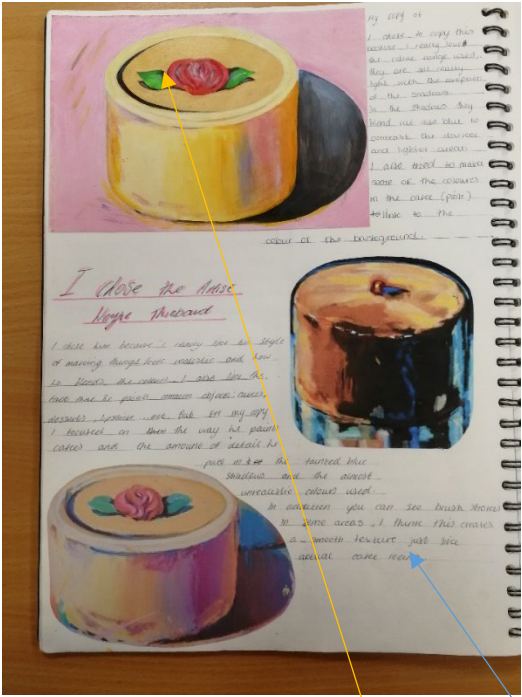 My copy of
I chose to copy this
because I really loved
the colour range used,
they are all really
light with the exception
of the shadows.
In the shadows they
blend use use blue to
the darker
and lighter areas.
I also tried to make
some of the colours
in the cake (pink)
to link to the
colour of the background.
I chose the Artist
Wayne Thiebaud
I chose him because I really like his style
of making things look realistic and how
he blends the colours. I also like the
fact that he paints random objects: cakes,
desserts, lipstick ect. But on my copy
I focused on the way he paints
cakes and the amount of detail he
puts in the blue
shadows and the almost
unrealistic colours used.
In addition you can see brush strokes
in some areas, I think this creates
a smooth texture just like
actual cake